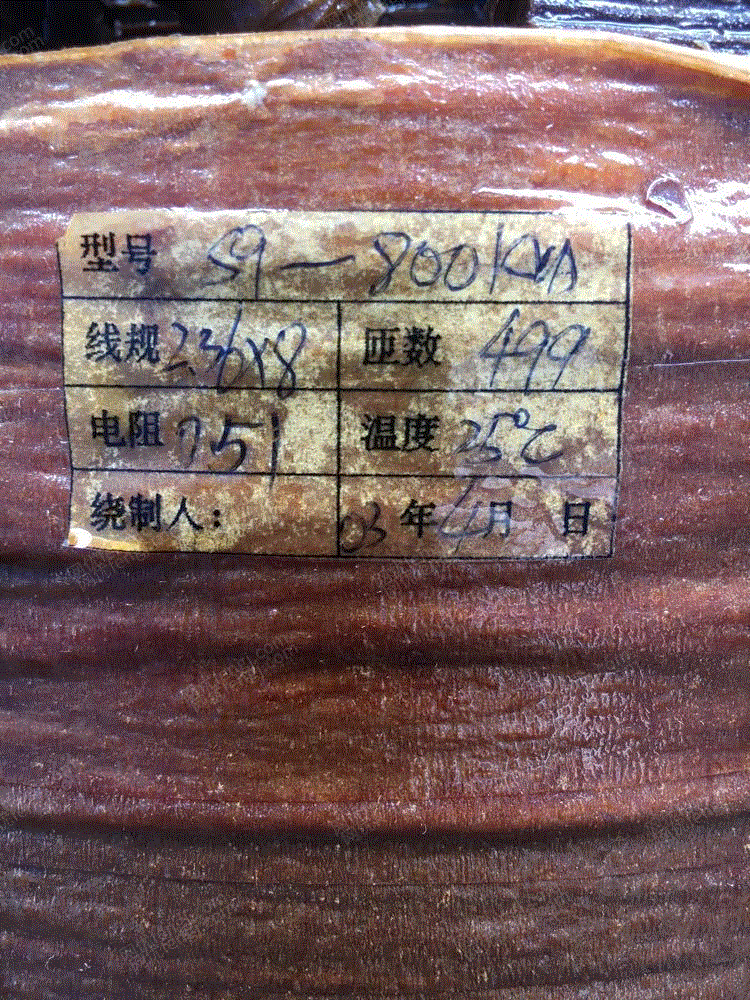 型号 S9-800KVA
线规 2.36×8 匝数 499
电阻 751 温度 25℃
绕制人： 03年4月 日